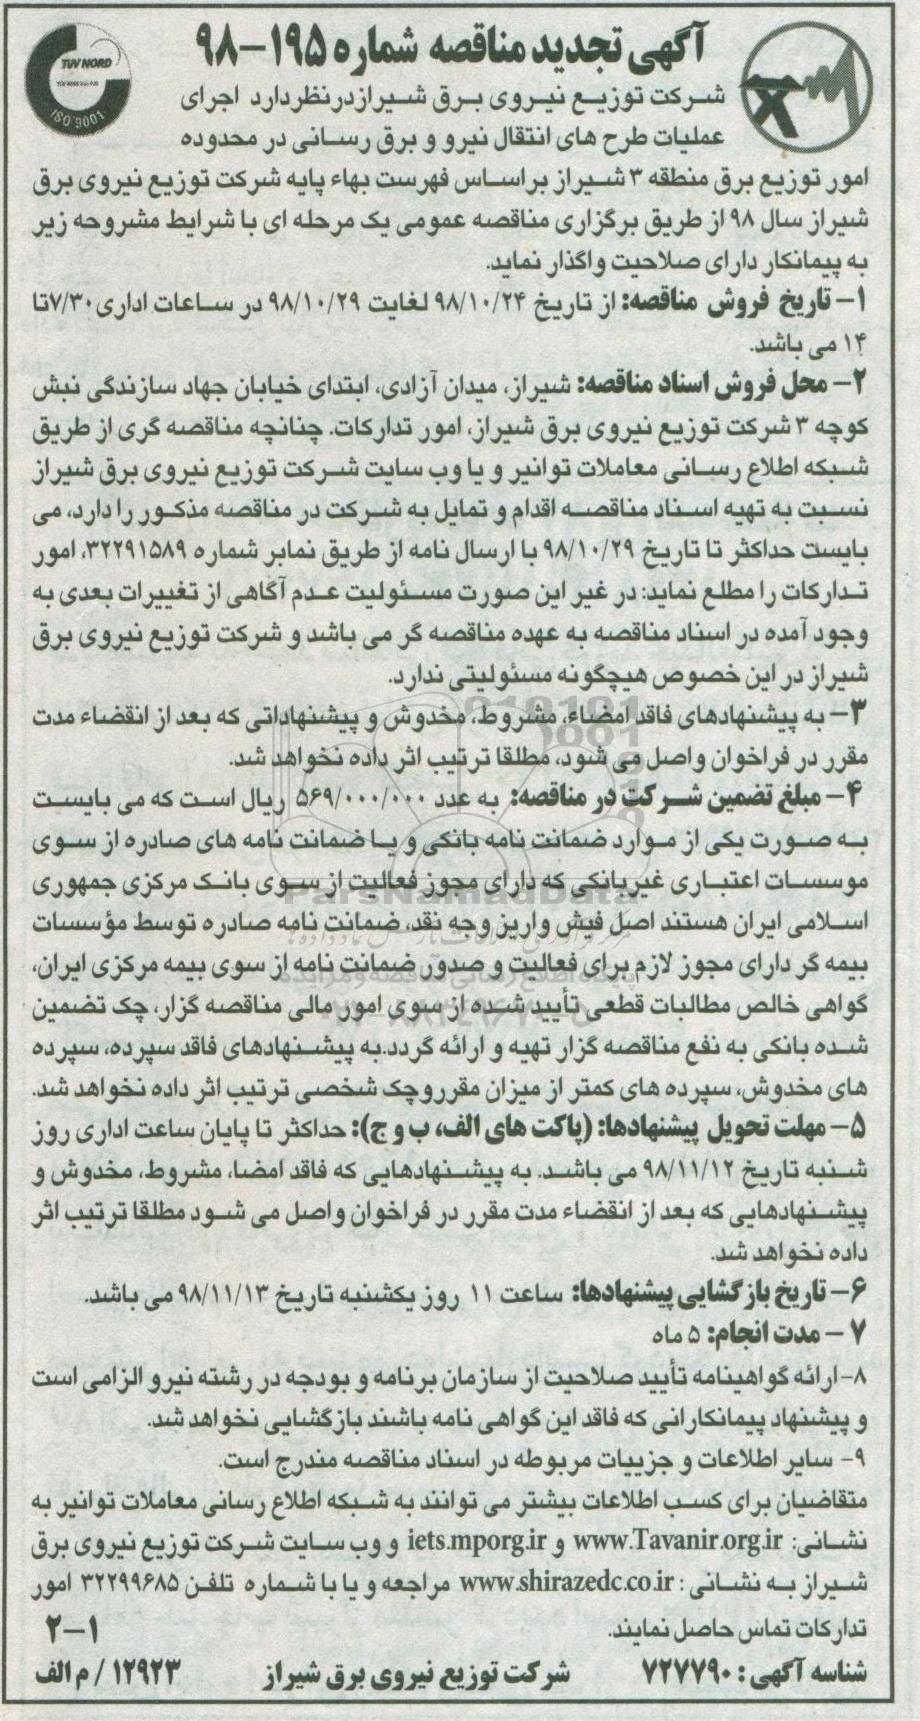 آگهی تجدید مناقصه شماره ۱۹۵-۹۸
TUV NORD
ISO 9001
شرکت توزیع نیروی برق شیراز درنظردارد اجرای
عملیات طرح های انتقال نیرو و برق رسانی در محدوده
امور توزیع برق منطقه ۳ شیراز براساس فهرست بهاء پایه شرکت توزیع نیروی برق
شیراز سال ۹۸ از طریق برگزاری مناقصه عمومی یک مرحله ای با شرایط مشروحه زیر
به پیمانکار دارای صلاحیت واگذار نماید.
۱- تاریخ فروش مناقصه: از تاریخ ۹۸/۱۰/۲۴ لغایت ۹۸/۱۰/۲۹ در ساعات اداری ۷/۳۰تا
۱۴ می باشد.
۲- محل فروش اسناد مناقصه: شیراز، میدان آزادی، ابتدای خیابان جهاد سازندگی نبش
کوچه ۳ شرکت توزیع نیروی برق شیراز، امور تدارکات. چنانچه مناقصه گری از طریق
شبکه اطلاع رسانی معاملات توانیر و یا وب سایت شرکت توزیع نیروی برق شیراز
نسبت به تهیه اسناد مناقصه اقدام و تمایل به شرکت در مناقصه مذکور را دارد، می
بایست حداکثر تا تاریخ ۹۸/۱۰/۲۹ با ارسال نامه از طریق نمابر شماره ۳۲۲۹۱۵۸۹، امور
تدارکات را مطلع نماید: در غیر این صورت مسئولیت عدم آگاهی از تغییرات بعدی به
وجود آمده در اسناد مناقصه به عهده مناقصه گر می باشد و شرکت توزیع نیروی برق
شیراز در این خصوص هیچگونه مسئولیتی ندارد.
۳- به پیشنهادهای فاقد امضاء، مشروط، مخدوش و پیشنهاداتی که بعد از انقضاء مدت
مقرر در فراخوان واصل می شود، مطلقا ترتیب اثر داده نخواهد شد.
۴- مبلغ تضمین شرکت در مناقصه: به عدد ۵۶۹/۰۰۰/۰۰۰ ریال است که می بایست
به صورت یکی از موارد ضمانت نامه بانکی و یا ضمانت نامه های صادره از سوی
موسسات اعتباری غیربانکی که دارای مجوز فعالیت از سوی بانک مرکزی جمهوری
ParsNamadData
اسلامی ایران هستند اصل فیش واریز وجه نقد، ضمانت نامه صادره توسط مؤسسات
بیمه گر دارای مجوز لازم برای فعالیت و صدور ضمانت نامه از سوی بیمه مرکزی ایران،
گواهی خالص مطالبات قطعی تأیید شده از سوی امور مالی مناقصه گزار، چک تضمین
شده بانکی به نفع مناقصه گزار تهیه و ارائه گردد.به پیشنهادهای فاقد سپرده، سپرده
های مخدوش، سپرده های کمتر از میزان مقرروچک شخصی ترتیب اثر داده نخواهد شد.
۵- مهلت تحویل پیشنهادها: (پاکت های الف، ب و ج): حداکثر تا پایان ساعت اداری روز
شنبه تاریخ ۹۸/۱۱/۱۲ می باشد. به پیشنهادهایی که فاقد امضا، مشروط، مخدوش و
پیشنهادهایی که بعد از انقضاء مدت مقرر در فراخوان واصل می شود مطلقا ترتیب اثر
داده نخواهد شد.
۶- تاریخ بازگشایی پیشنهادها: ساعت ۱۱ روز یکشنبه تاریخ ۹۸/۱۱/۱۳ می باشد.
۷ - مدت انجام: ۵ ماه
۸- ارائه گواهینامه تأیید صلاحیت از سازمان برنامه و بودجه در رشته نیرو الزامی است
و پیشنهاد پیمانکارانی که فاقد این گواهی نامه باشند بازگشایی نخواهد شد.
۹- سایر اطلاعات و جزییات مربوطه در اسناد مناقصه مندرج است.
متقاضیان برای کسب اطلاعات بیشتر می توانند به شبکه اطلاع رسانی معاملات توانیر به
نشانی: www.Tavanir.org.ir و iets.mporg.ir و وب سایت شرکت توزیع نیروی برق
شیراز به نشانی : www.shirazedc.co.ir مراجعه و یا با شماره تلفن ۳۲۲۹۹۶۸۵ امور
تدارکات تماس حاصل نمایند.
۲-۱
شناسه آگهی : ۷۲۷۷۹۰ شرکت توزیع نیروی برق شیراز ۱۲۹۲۳ / م الف